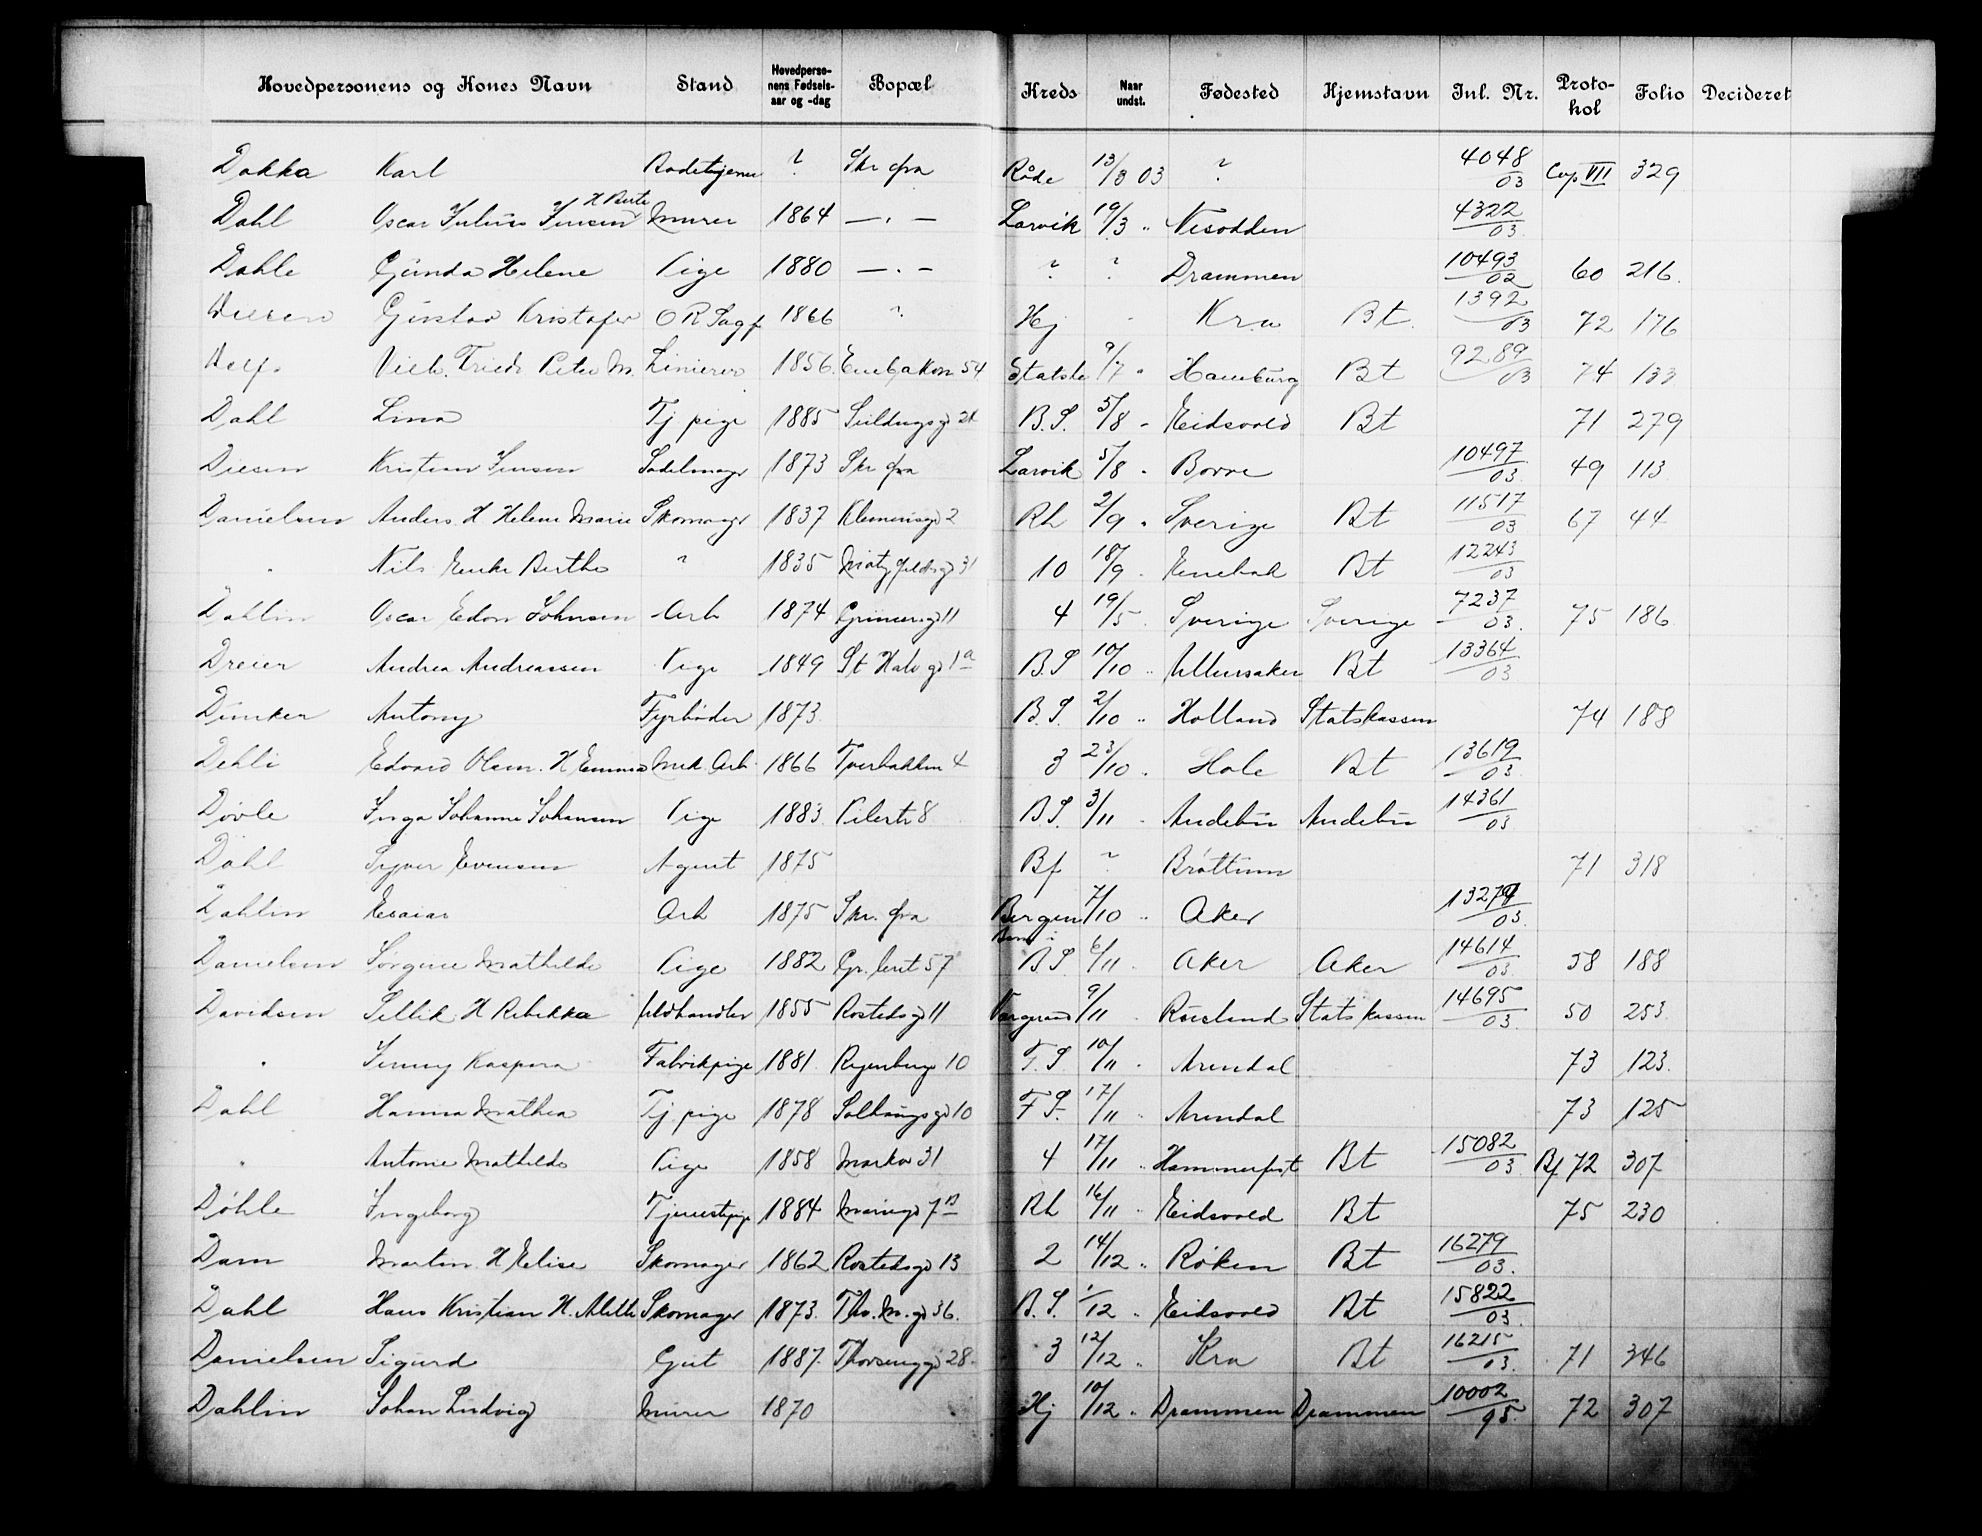 Hovedpersonens og Kones Navn Stand Hovedpersonens Fødselsaar og -dag Bopæl Kreds Naar undst. Fødested Hjemstavn Inl. Nr. Protokol Folio Decideret
Dokka Karl ? Skr fra Råde 13/3 03 ? 4048/03 Cop VII 329
Dahl Oscar Julius Jensen H Berte Murer 1864 — . — Larvik 19/3 " Nesodden 4322/03
Dahle Gunda Helene Pige 1880 — . — ? ? Drammen 10493/02 60 216.
Gustav Kristofer 1866 ? Hj Kra Bt. 1392/03 72 176
Peter M. 1856. 54 9/7 " Hamburg Bt 9289/03 74 133
Dahl Lina Tj pige 1885 B.S. 5/8 " Eidsvold Bt 71 279
Diesen Kristian Jensen Sadelmager 1873 Skr fra Larvik 5/8 " Borre 10497/03 49 113
Danielsen Anders H Helene Marie Skomager 1837 Klemensgd 2 Rh 2/9 " Sverige Bt 11517/03 67 44
" Nils Enke Berthe " 1835 31 10 18/9 " Enebak Bt 12243/03
Dahlin Oscar Edon Johnsen Arb 1874 Grünersgd 11 4 19/5 " Sverige Sverige 7237/03. 75 186
Dreier Andrea Andreassen Pige 1849 St Halv gd 1a B.S 10/10 " Ullensaker Bt 13364/03
Dunker Antony Fyrbøder 1873. B.S. 2/10 " Holland Statskassen 74 188
Dehli Edvard Olsen. H Emma Mek. Arb 1866 Tverbakken 4 3 23/10 " Hole Bt 13619/03
Døvle Inga Johanne Johansen Pige 1883. Pilestr 8 B.S. 3/11 " Andebu Andebu 14361/03
Dahl Syver Evensen Agent 1875 Bf ? Brøttum 71 318
Dahlin Esaias Arb 1875 Skr. fra Bergen 7/10 " Aker 03.
Danielsen Jørgine Mathilde Pige 1882 57 B S. 6/11 " Aker Aker 14614/03 58 188
Davidsen H Rebekka 1855 Rostedsgd 11 9/11 " Rusland Statskassen 14695/03. 50 253.
" Jenny Kaspara Fabrikpige 1881. Ryenberge 10 F. S. 10/11 " Arendal 73 123.
Dahl Hanna Mathea Tj. pige 1878 Solhaugsgd 10 F S. 17/11 " Arendal 73 125
" Antonie Mathilde Pige 1858 Markv 31 4 17/11 " Hammerfest Bt 15082/03 Bf 72 307
Døhle Ingeborg Tjenestepige 1884 Rh 16/11 " Eidsvold Bt 75 230
Dam Martin H Elise Skomager 1862 Rostedsgd 13 2 14/12 " Røken Bt 16279/03.
Dahl Hans Kristian H. Alette Skomager 1873. Tho. M. gd 36. B. S. 1/12 " Eidsvold Bt 15822/03.
Danielsen Sigurd Gut 1887. 28. 3 12/12 " Kra Bt 16215/03. 71 346
Dahlin Johan Ludvig Murer 1870 Hj 10/12 " Drammen Drammen 10002/95. 72 307